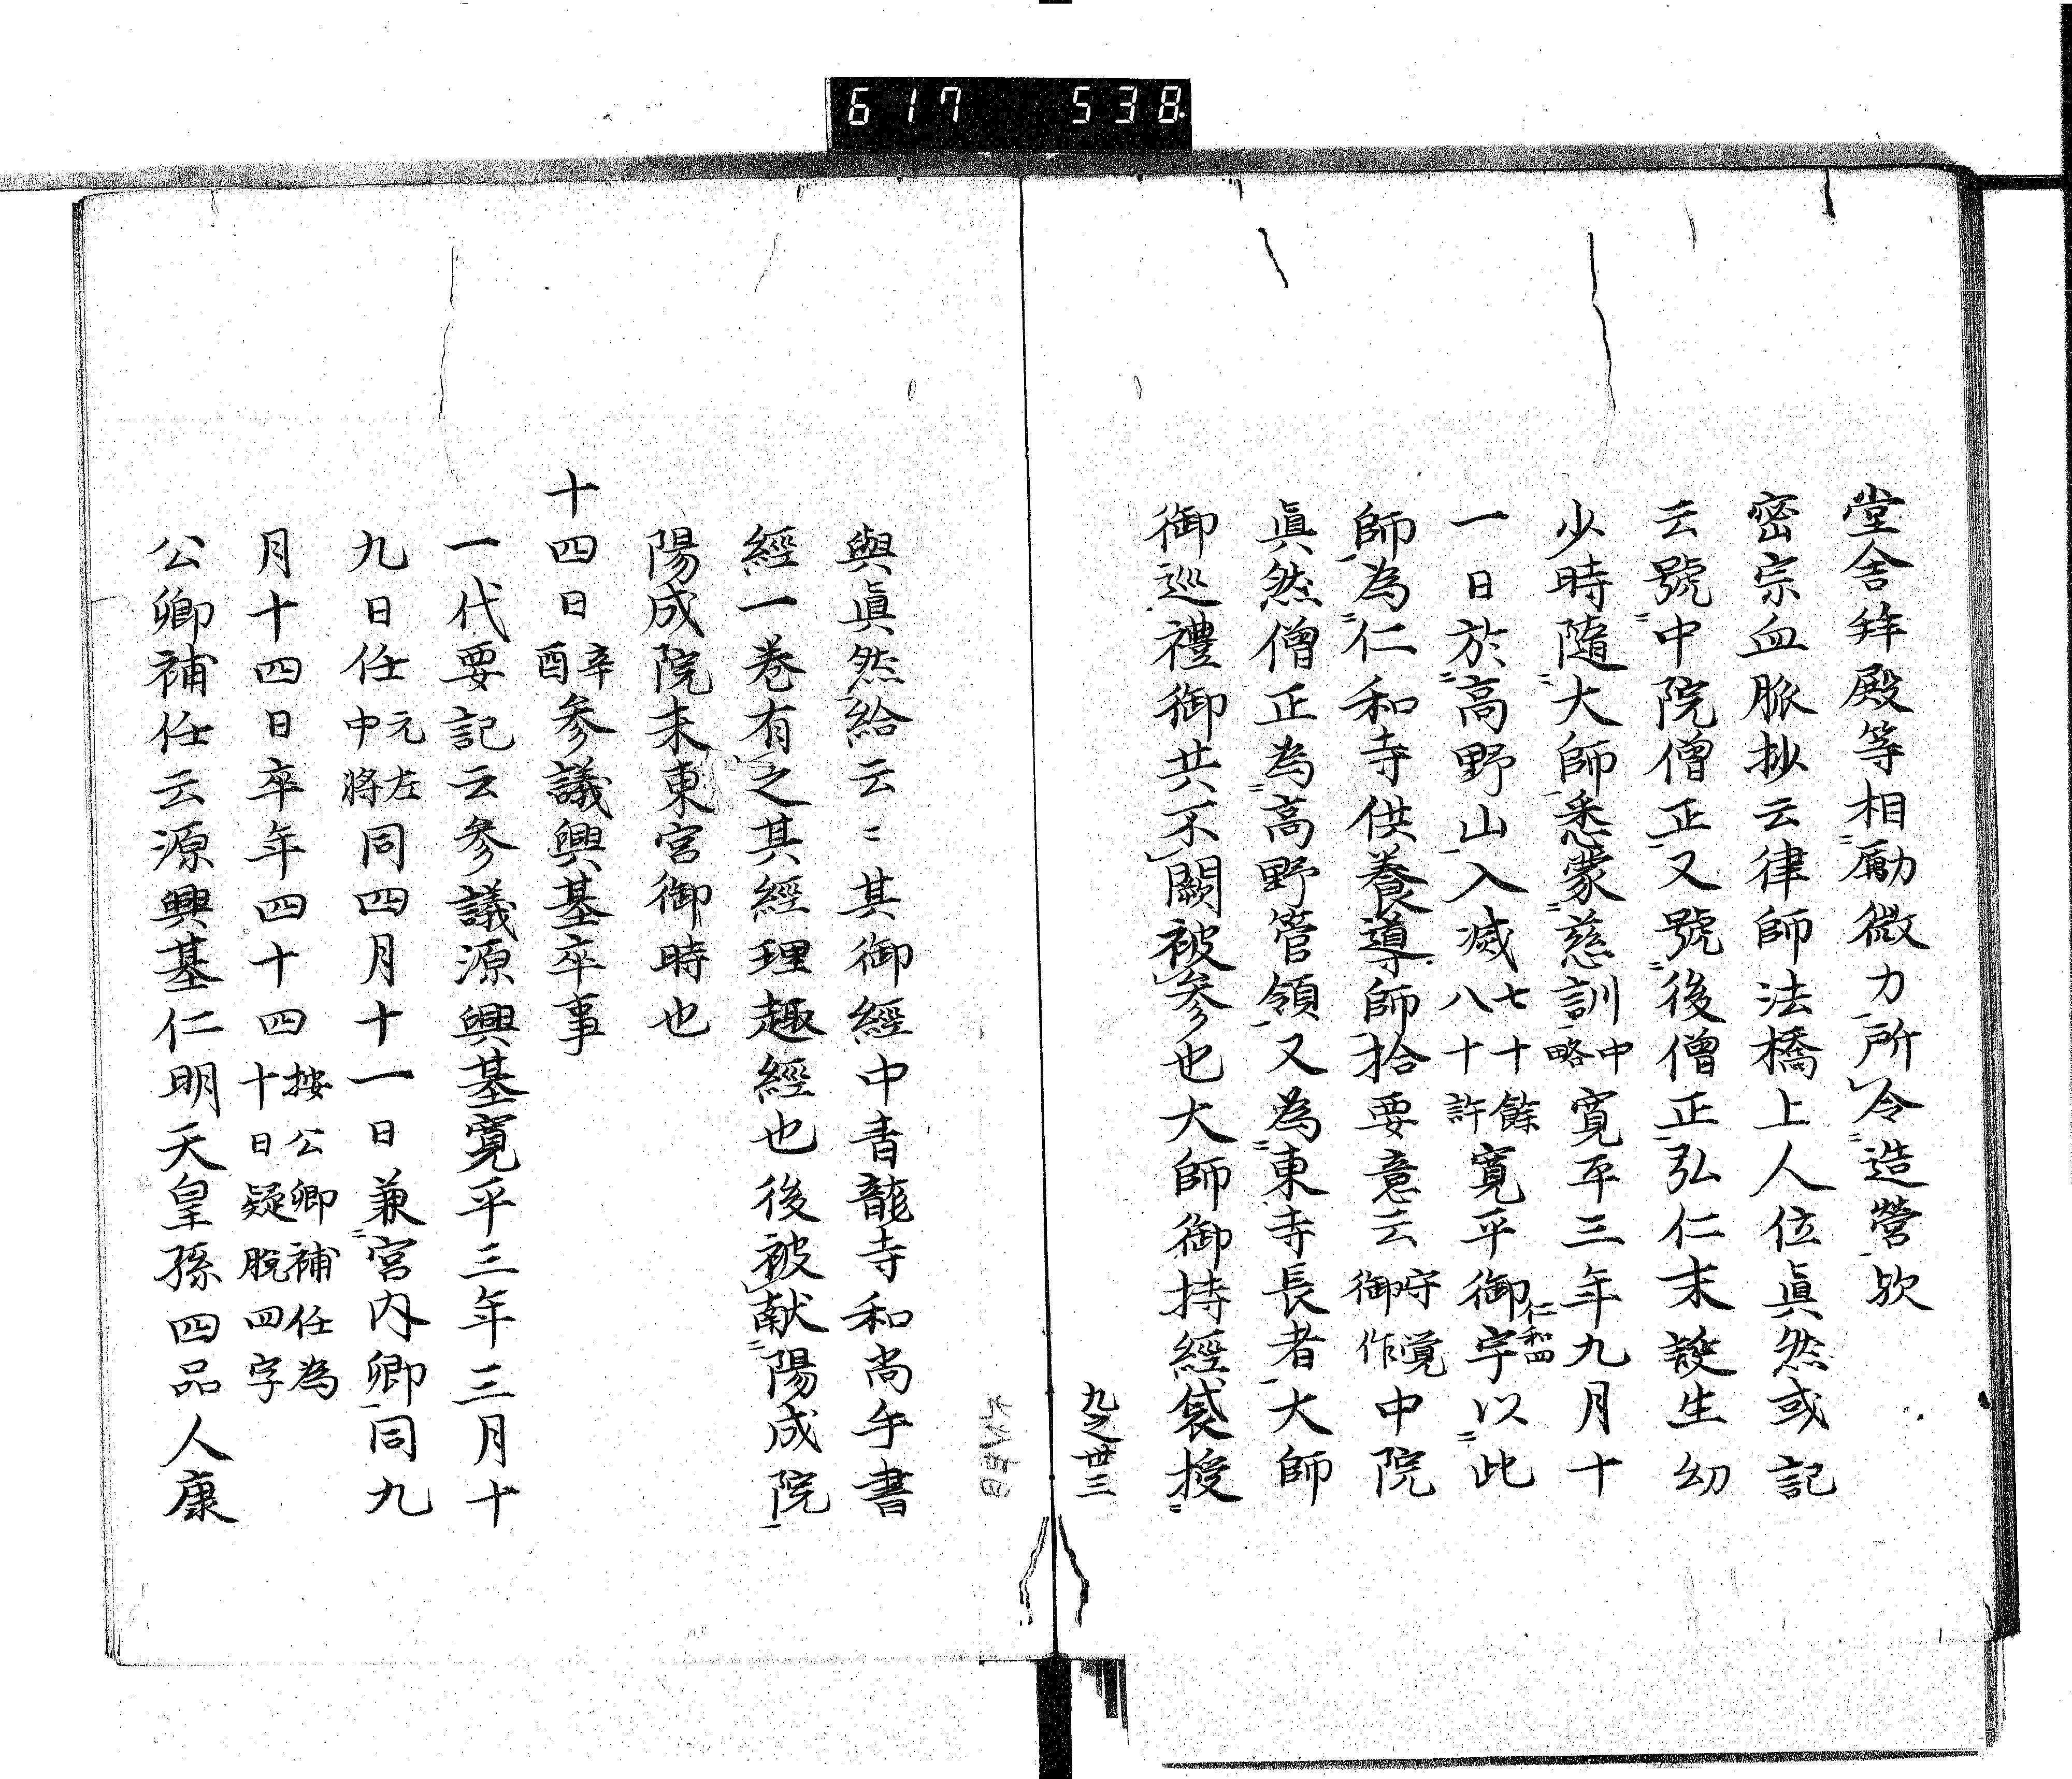 617 538
堂舍幷殿等相勵微力所令造營歟
密宗血脈抄云律師法橋上人位眞然或記
云號中院僧正又號後僧正弘仁末誕生幼
少時隨大師悉蒙慈訓中略寛平三年九月十
一日於高野山入滅七十餘八十許寛平御宇仁和四以此
師為仁和寺供養導師拾要意云守覚御作中院
眞然僧正為高野管領又為東寺長者大師
御巡禮御共不闕被參也大師御持經袋授
九之卅三
與眞然給云〻其御經中青龍寺和尚手書
經一巻有之其經理趣經也後被献陽成院
陽成院未東宮御時也
十四日辛酉參議興基卒事
一代要記云參議源興基寛平三年三月十
九日任元左中將同四月十一日兼宮内卿同九
月十四日卒年四十四按公卿補任為十日疑脫四字
公卿補任云源興基仁明天皇孫四品人康